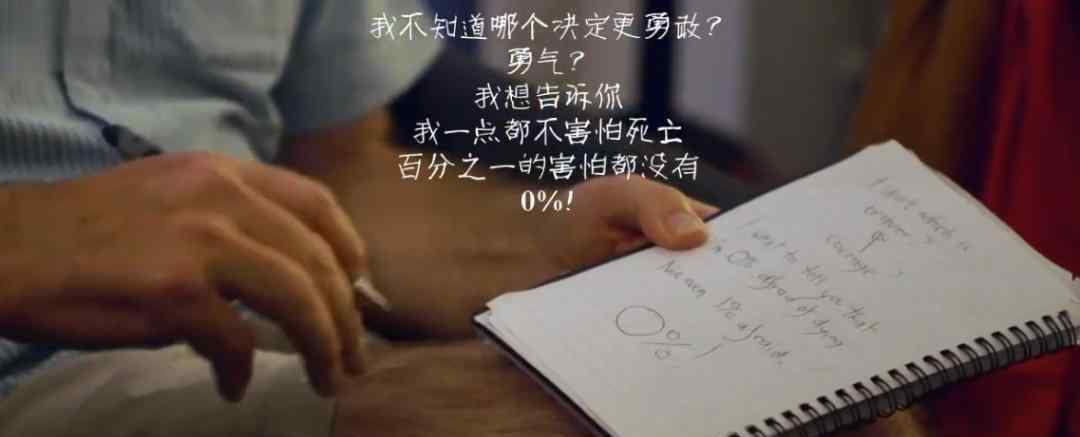 我不知道哪个决定更勇敢?
勇气?
我想告诉你
我一点都不害怕死亡
百分之一的害怕都没有
0%!
I don't which is
courage?
I want to tell you that
0% afraid of dying
Not even 1% afraid.
0%!